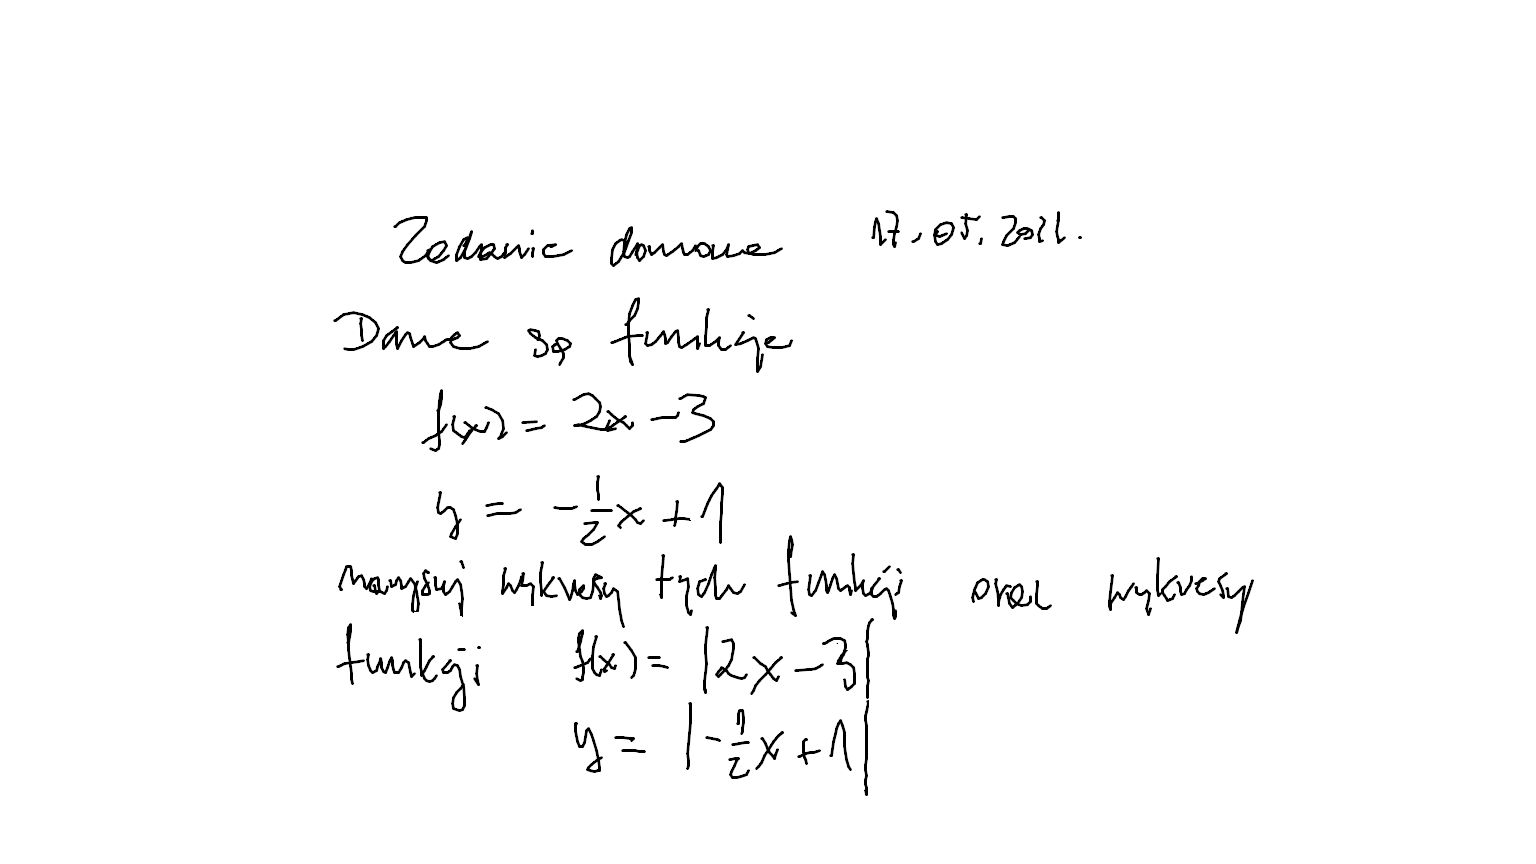 Zadanie domowe 17.05.2021.
Dane są funkcje
f(x) = 2x - 3
y = -1/2 x + 1
narysuj wykresy tych funkcji oraz wykresy
funkcji f(x) = |2x - 3|
y = |-1/2 x + 1|